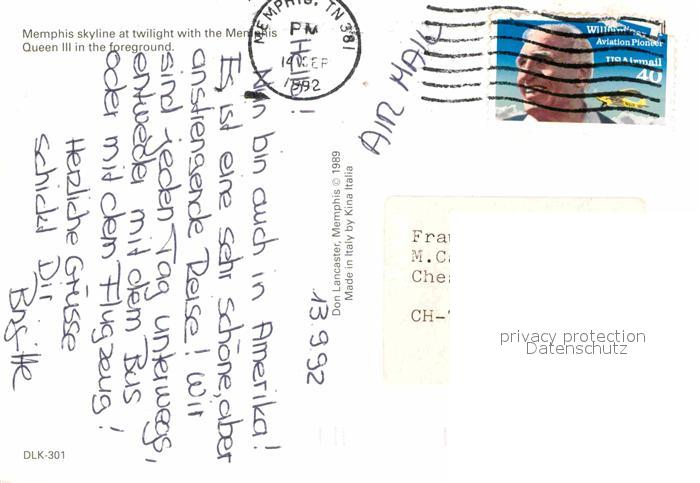 Memphis skyline at twilight with the Memphis
Queen III in the foreground.
MEMPHIS, TN 381
PM
14 SEP
1992
AIR MAIL
William
Aviation Pioneer
US Airmail
40
13.9.92
Hello!
Nun bin auch in Amerika!
Es ist eine sehr schöne, aber
anstrengende Reise! Wir
sind jeden Tag unterwegs,
entweder mit dem Bus
oder mit dem Flugzeug!
Herzliche Grüsse
schickt Dir
Don Lancaster, Memphis © 1989
Made in Italy by Kina Italia
Frau
M.C.
Che
CH-
privacy protection
Datenschutz
DLK-301